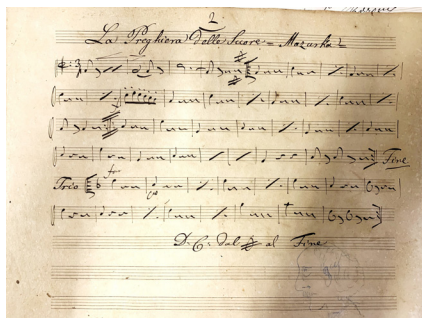 2
La Preghiera delle Suore = Mazurka =
Fine
Trio
D. C. dal al Fine